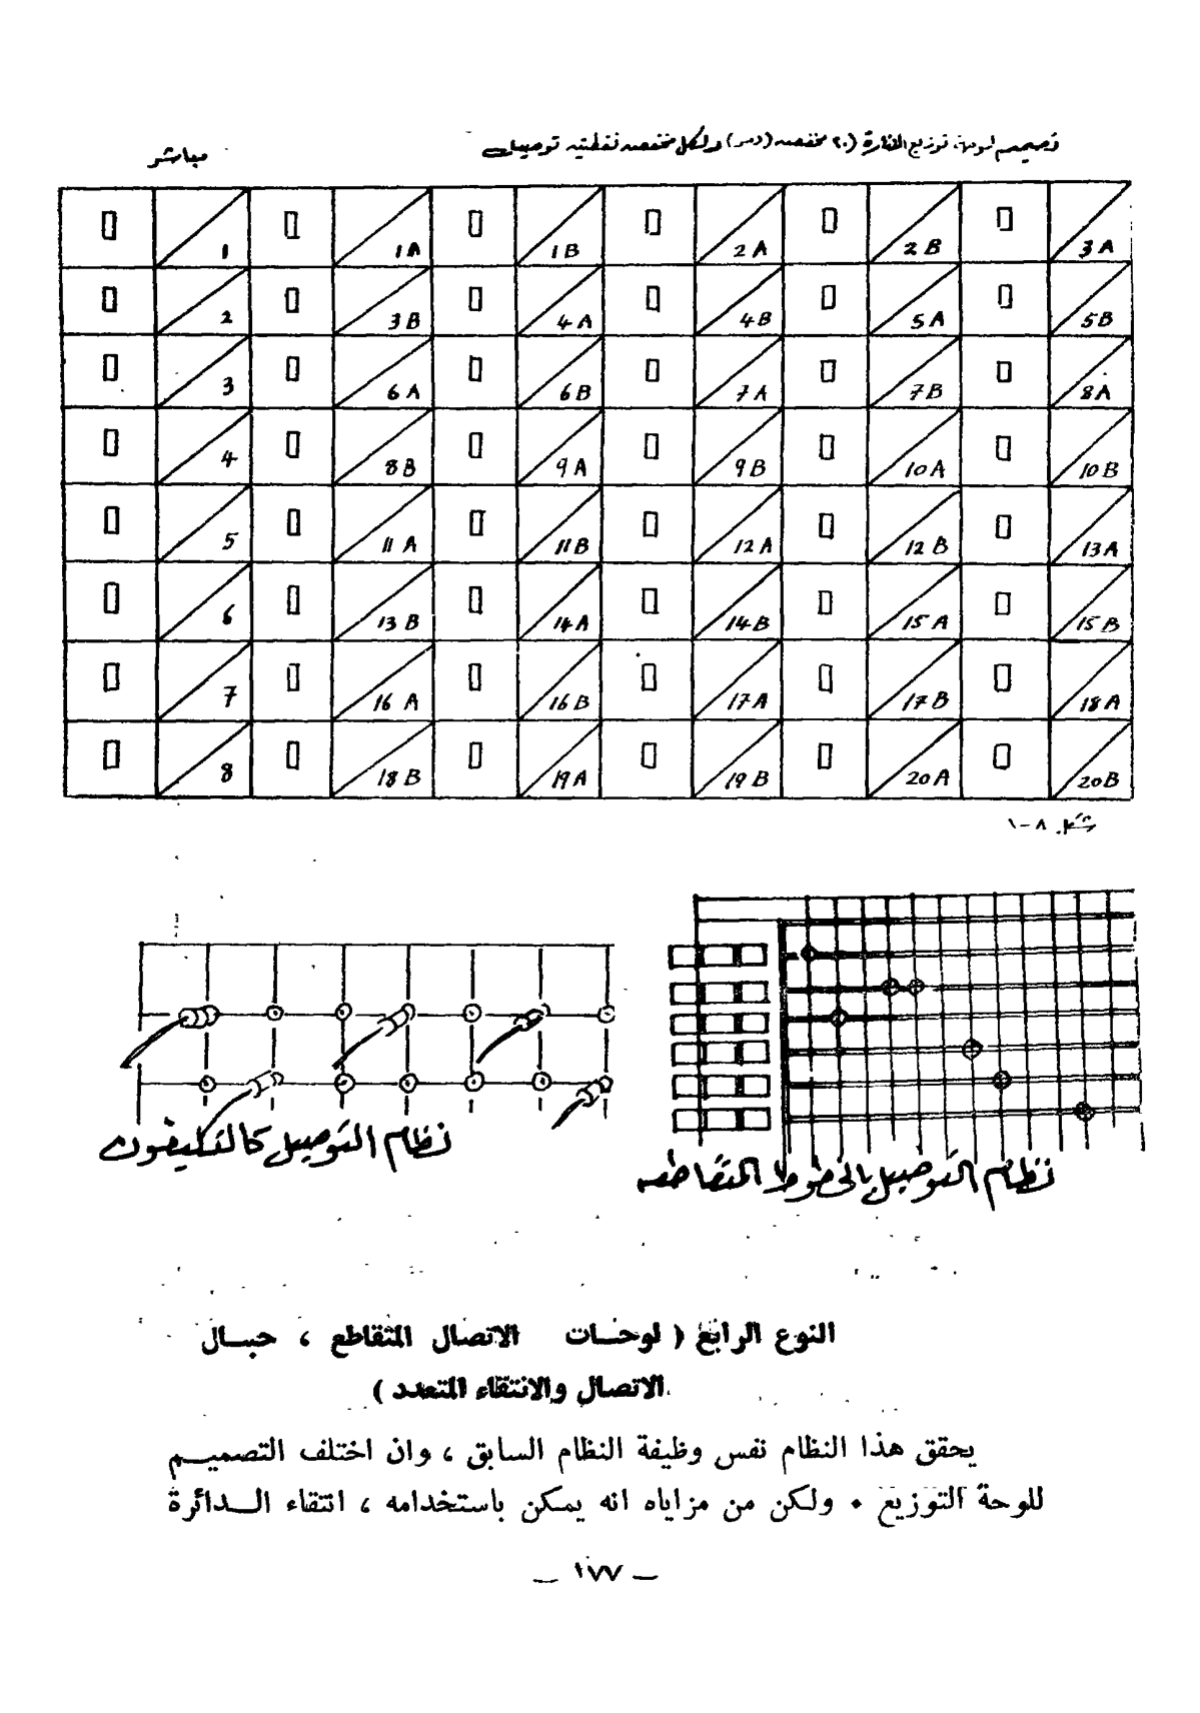 تصميم لوحة توزيع الفارة (٢٠ مخفضه (دمر) ولكل مخفضه نقطتيه توصيل
مباشر
1 1A 1B 2A 2B 3A
2 3B 4A 4B 5A 5B
3 6A 6B 7A 7B 8A
4 8B 9A 9B 10A 10B
5 11A 11B 12A 12B 13A
6 13B 14A 14B 15A 15B
7 16A 16B 17A 17B 18A
8 18B 19A 19B 20A 20B
شكل ٨-١
نظام التوصيل بالخطوط المتقاطعه
نظام التوصيل كالتليفون
النوع الرابع ( لوحات الاتصال المتقاطع ، حبال
الاتصال والانتقاء المتعدد )
يحقق هذا النظام نفس وظيفة النظام السابق ، وان اختلف التصميم
للوحة التوزيع • ولكن من مزاياه انه يمكن باستخدامه ، انتقاء الدائرة
— ١٧٧ —